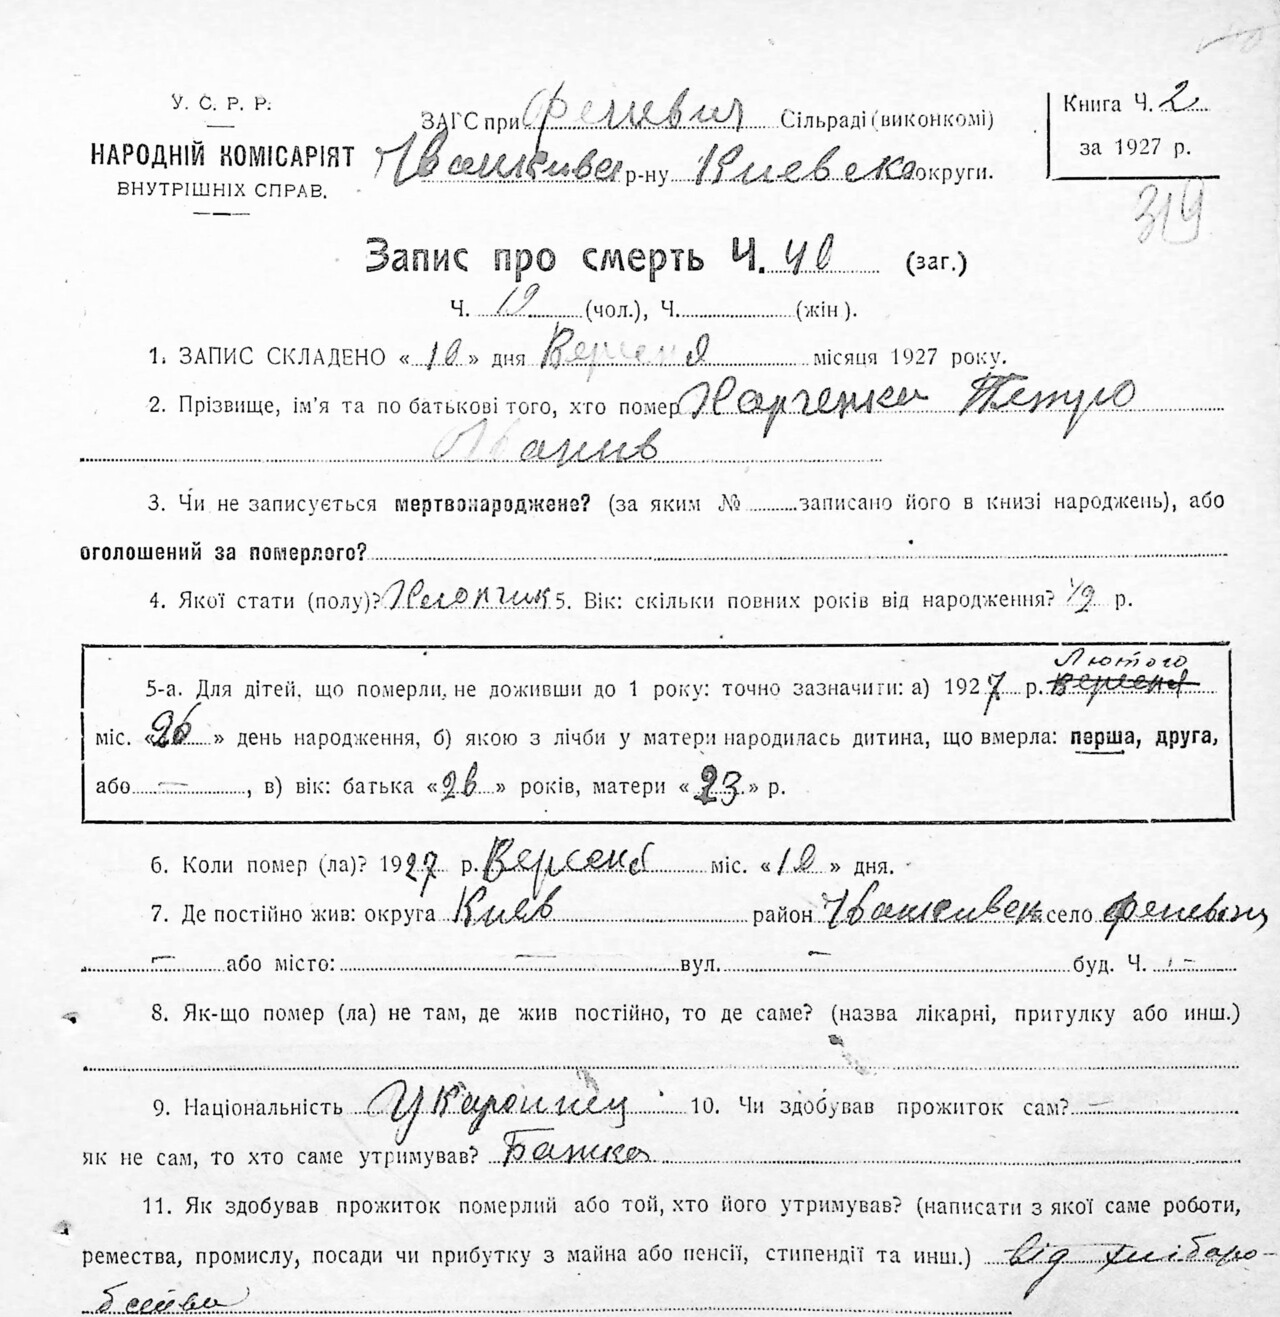 У. С. Р. Р.
НАРОДНІЙ КОМІСАРІЯТ
ВНУТРІШНІХ СПРАВ.
ЗАГС при Феневич Сільраді (виконкомі)
Іванкивск р-ну Киевска округи.
Книга Ч. 2
за 1927 р.
319
Запис про смерть Ч. (заг.)
Ч. 19 (чол.), Ч. (жін).
1. ЗАПИС СКЛАДЕНО « » дня Вересня місяця 1927 року.
2. Прізвище, ім'я та по батькові того, хто помер Харченко Петро
Иванив
3. Чи не записується мертвонароджене? (за яким № записано його в книзі народжень), або
оголошений за померлого?
4. Якої стати (полу)? Хлопчик 5. Вік: скільки повних років від народження? 1/2 р.
Лютого
5-а. Для дітей, що померли, не доживши до 1 року: точно зазначити: а) 1927 р. вересня
міс. «26» день народження, б) якою з лічби у матери народилась дитина, що вмерла: перша, друга,
або — , в) вік: батька «26» років, матери «23» р.
6. Коли помер (ла)? 1927 р. Вересня міс. « » дня.
7. Де постійно жив: округа Киев район Іванкивск село Феневич
— або місто: — вул. — буд. Ч. —
8. Як-що помер (ла) не там, де жив постійно, то де саме? (назва лікарні, пригулку або инш.)
9. Національність 10. Чи здобував прожиток сам? —
як не сам, то хто саме утримував? Батько
11. Як здобував прожиток померлий або той, хто його утримував? (написати з якої саме роботи,
ремества, промислу, посади чи прибутку з майна або пенсії, стипендії та инш.) від хлібаро-
бства